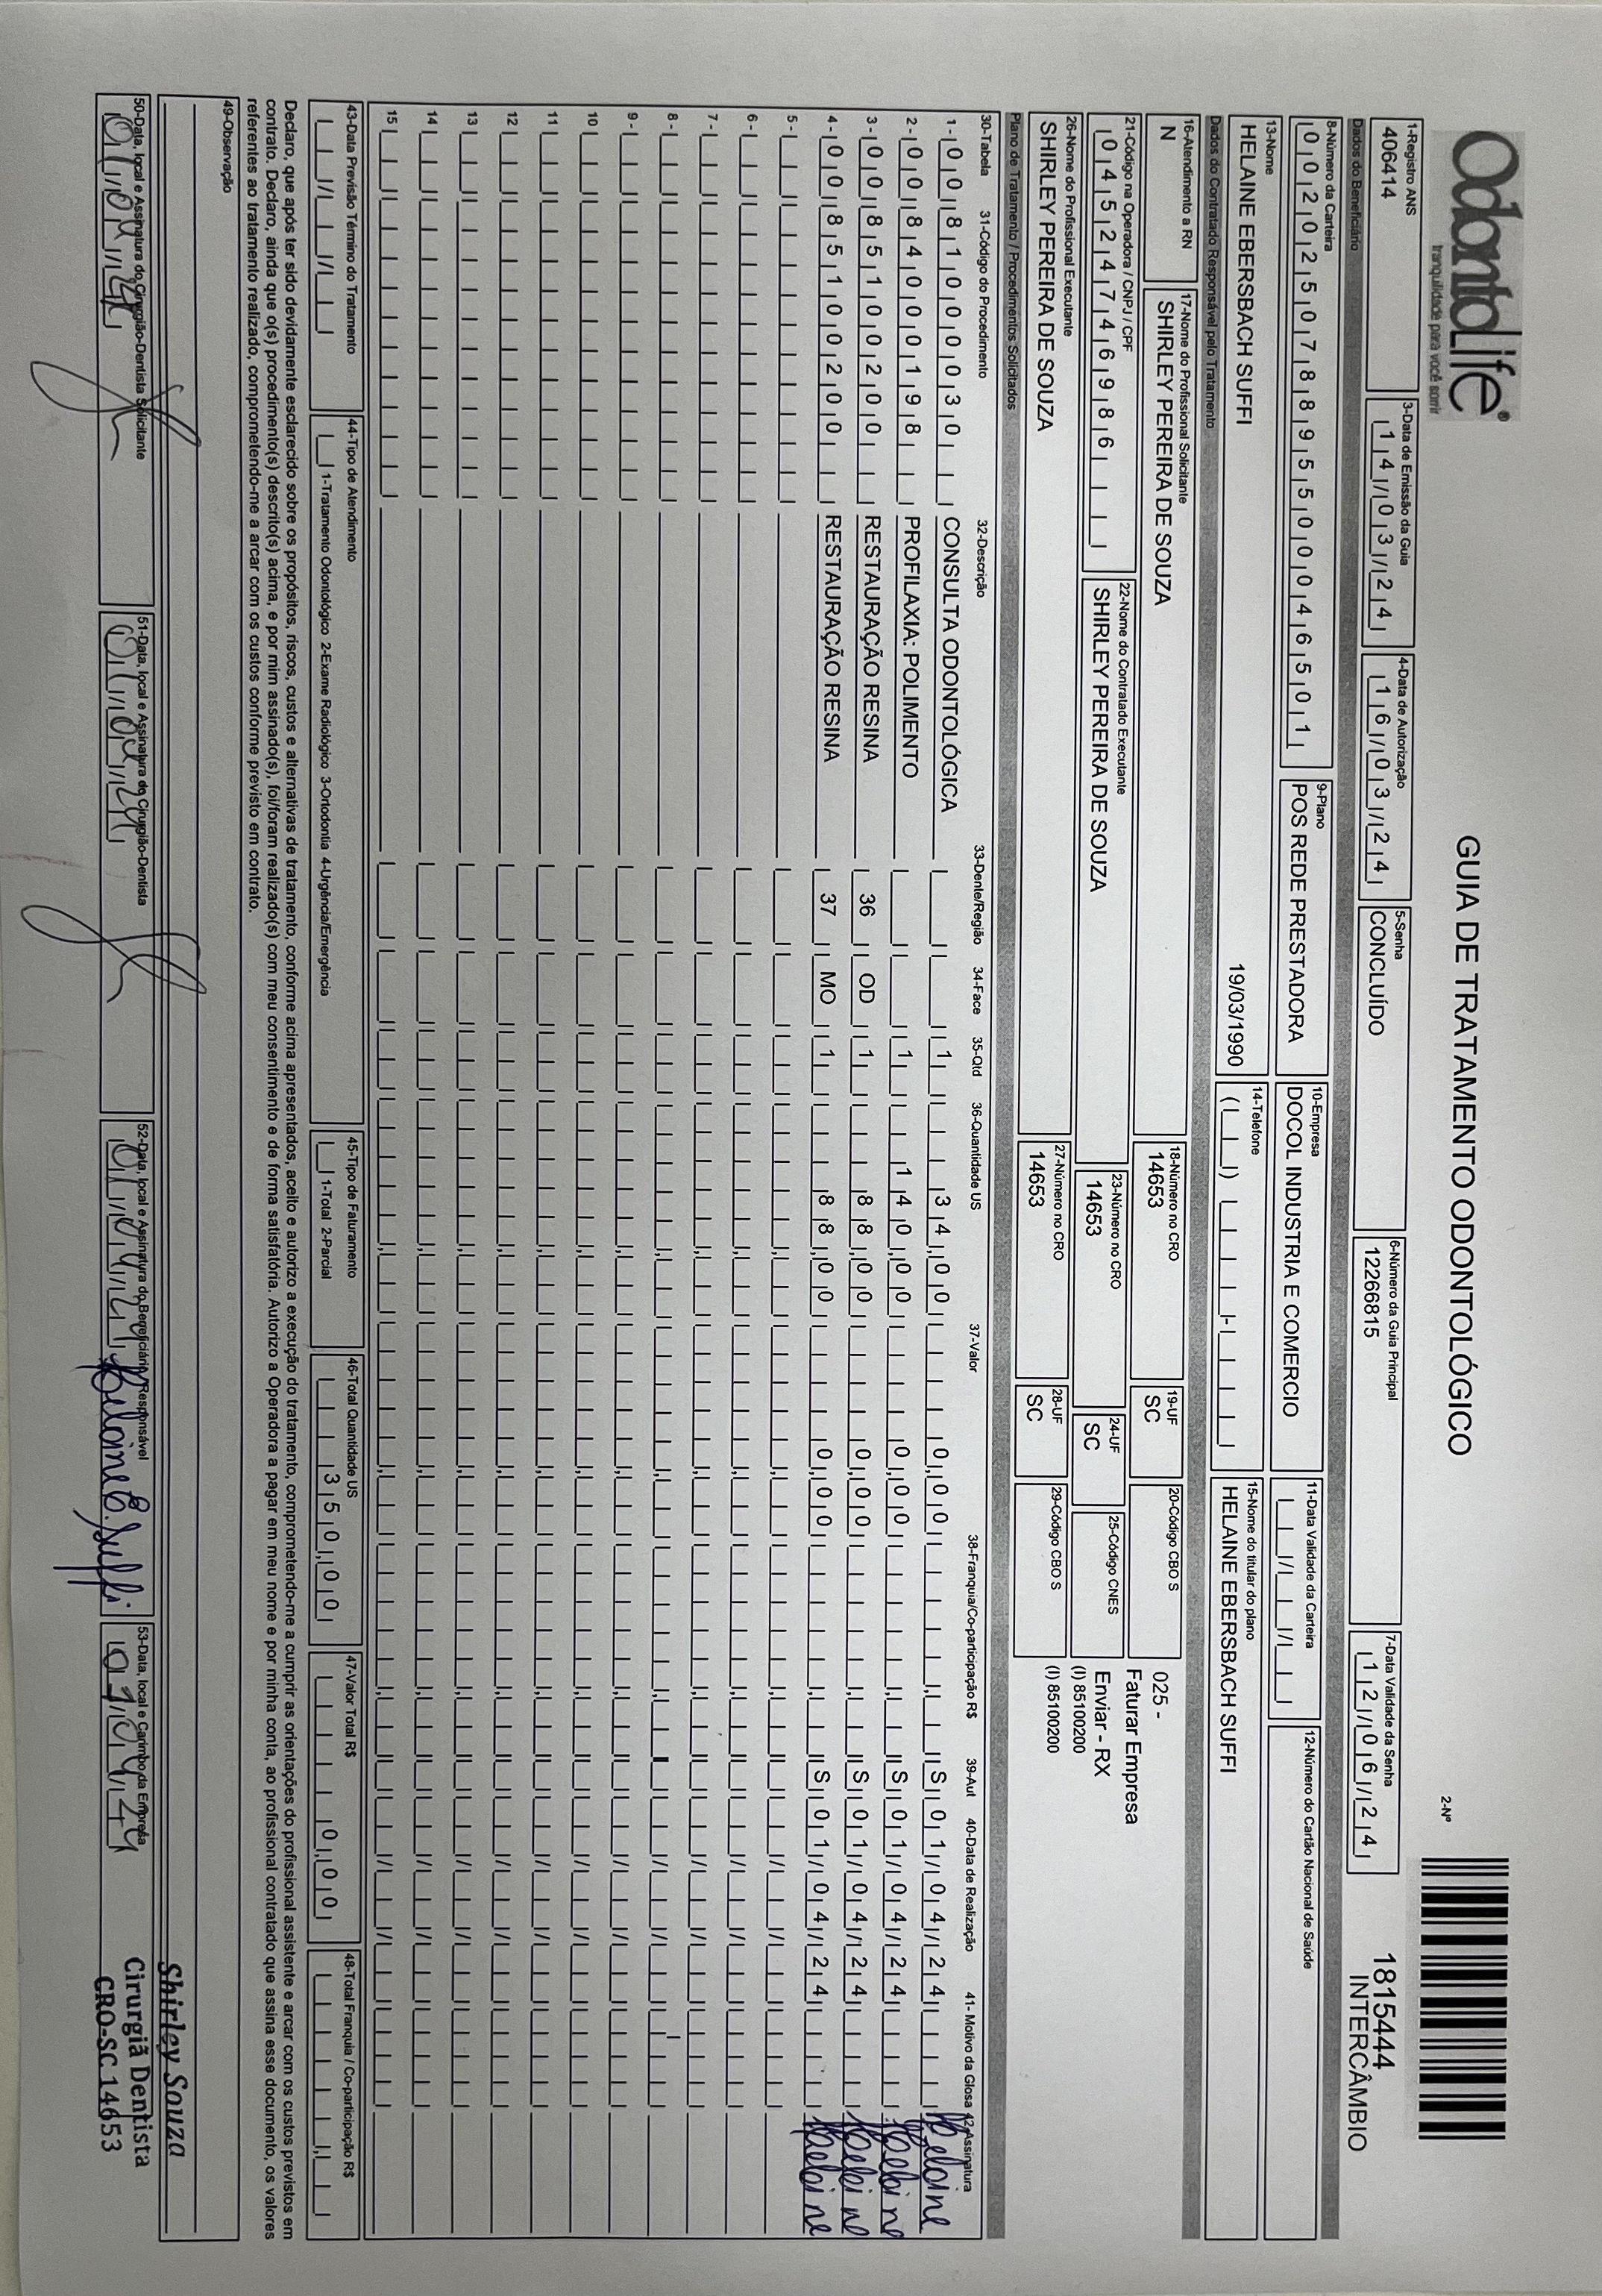 OdontoLife®
tranquilidade para você sorrir
GUIA DE TRATAMENTO ODONTOLÓGICO
2-Nº
1815444
INTERCÂMBIO
1-Registro ANS
406414
3-Data de Emissão da Guia
14/03/24
4-Data de Autorização
16/03/24
5-Senha
CONCLUÍDO
6-Número da Guia Principal
12266815
7-Data Validade da Senha
12/06/24
Dados do Beneficiário
8-Número da Carteira
00202507889550004 6501
9-Plano
POS REDE PRESTADORA
10-Empresa
DOCOL INDUSTRIA E COMERCIO
11-Data Validade da Carteira
12-Número do Cartão Nacional de Saúde
13-Nome
HELAINE EBERSBACH SUFFI
19/03/1990
14-Telefone
15-Nome do titular do plano
HELAINE EBERSBACH SUFFI
Dados do Contratado Responsável pelo Tratamento
16-Atendimento a RN
N
17-Nome do Profissional Solicitante
SHIRLEY PEREIRA DE SOUZA
18-Número no CRO
14653
19-UF
SC
20-Código CBO S
025 -
Faturar Empresa
21-Código na Operadora / CNPJ / CPF
04524746986
22-Nome do Contratado Executante
SHIRLEY PEREIRA DE SOUZA
23-Número no CRO
14653
24-UF
SC
25-Código CNES
Enviar - RX
(I) 85100200
(I) 85100200
26-Nome do Profissional Executante
SHIRLEY PEREIRA DE SOUZA
27-Número no CRO
14653
28-UF
SC
29-Código CBO S
Plano de Tratamento / Procedimentos Solicitados
30-Tabela 31-Código do Procedimento 32-Descrição 33-Dente/Região 34-Face 35-Qtd 36-Quantidade US 37-Valor 38-Franquia/Co-participação R$ 39-Aut 40-Data de Realização 41- Motivo da Glosa 42-Assinatura
1 - 00 81000030 CONSULTA ODONTOLÓGICA 1 34,00 0,00 S 01/04/24 Helaine
2 - 00 84000198 PROFILAXIA: POLIMENTO 1 140,00 0,00 S 01/04/24 Helaine
3 - 00 85100200 RESTAURAÇÃO RESINA 36 OD 1 88,00 0,00 S 01/04/24 Helaine
4 - 00 85100200 RESTAURAÇÃO RESINA 37 MO 1 88,00 0,00 S 01/04/24 Helaine
5 -
6 -
7 -
8 -
9 -
10
11
12
13
14
15
43-Data Previsão Término do Tratamento
44-Tipo de Atendimento
1-Tratamento Odontológico 2-Exame Radiológico 3-Ortodontia 4-Urgência/Emergência
45-Tipo de Faturamento
1-Total 2-Parcial
46-Total Quantidade US
350,00
47-Valor Total R$
0,00
48-Total Franquia / Co-participação R$
Declaro, que após ter sido devidamente esclarecido sobre os propósitos, riscos, custos e alternativas de tratamento, conforme acima apresentados, aceito e autorizo a execução do tratamento, comprometendo-me a cumprir as orientações do profissional assistente e arcar com os custos previstos em
contrato. Declaro, ainda que o(s) procedimento(s) descrito(s) acima, e por mim assinado(s), foi/foram realizado(s) com meu consentimento e de forma satisfatória. Autorizo a Operadora a pagar em meu nome e por minha conta, ao profissional contratado que assina esse documento, os valores
referentes ao tratamento realizado, comprometendo-me a arcar com os custos conforme previsto em contrato.
49-Observação
Shirley Souza
Cirurgiã Dentista
CRO-SC 14653
50-Data, local e Assinatura do Cirurgião-Dentista Solicitante
01/04/24
51-Data, local e Assinatura do Cirurgião-Dentista
01/04/24
52-Data, local e Assinatura do Beneficiário/Responsável
01/04/24 Helaine E. Suffi
53-Data, local e Carimbo da Empresa
01/04/24